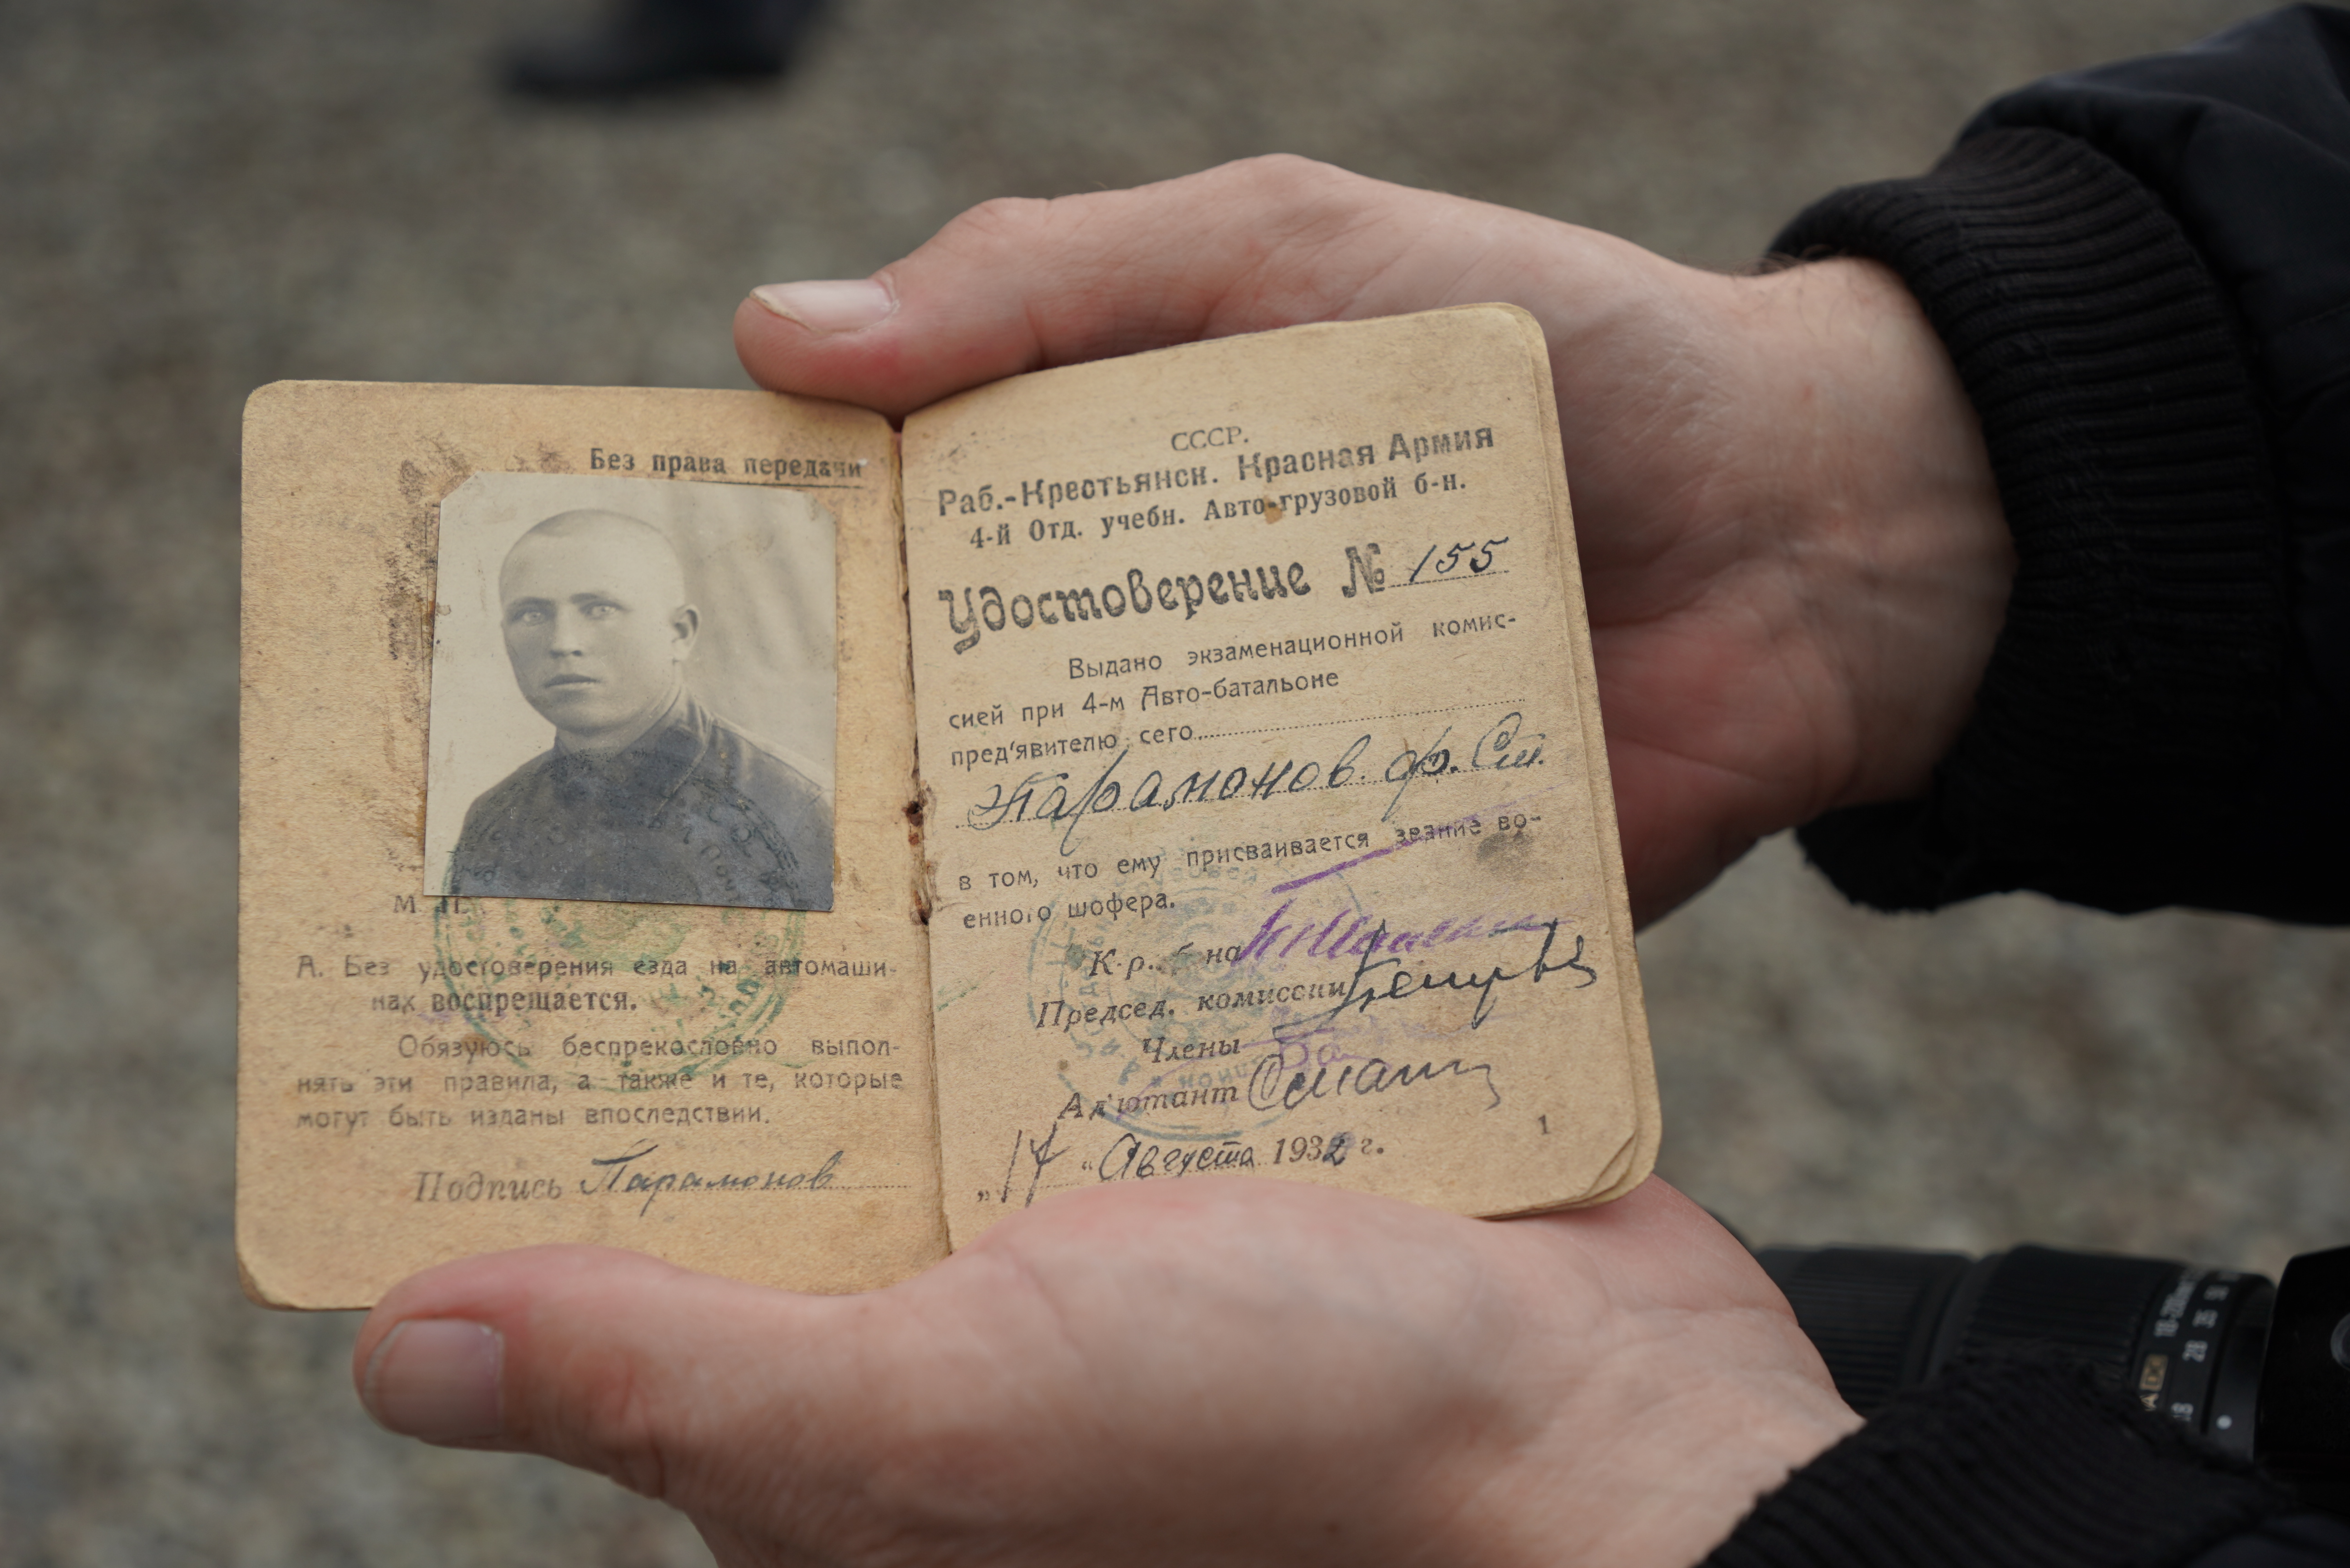 Без права передачи
М. П.
А. Без удостоверения езда на автомаши-
нах воспрещается.
Обязуюсь беспрекословно выпол-
нять эти правила, а также и те, которые
могут быть изданы впоследствии.
Подпись Парамонов
СССР.
Раб.-Крестьянск. Красная Армия
4-й Отд. учебн. Авто-грузовой б-н.
Удостоверение № 155
Выдано экзаменационной комис-
сией при 4-м Авто-батальоне
пред'явителю сего
Парамонов. ф. См.
в том, что ему присваивается звание во-
енного шофера.
К-р. б-на
Председ. комиссии
Члены
Ад'ютант
„17 “ Августа 1932 г.
1
18-200mm
28 35
DC
18